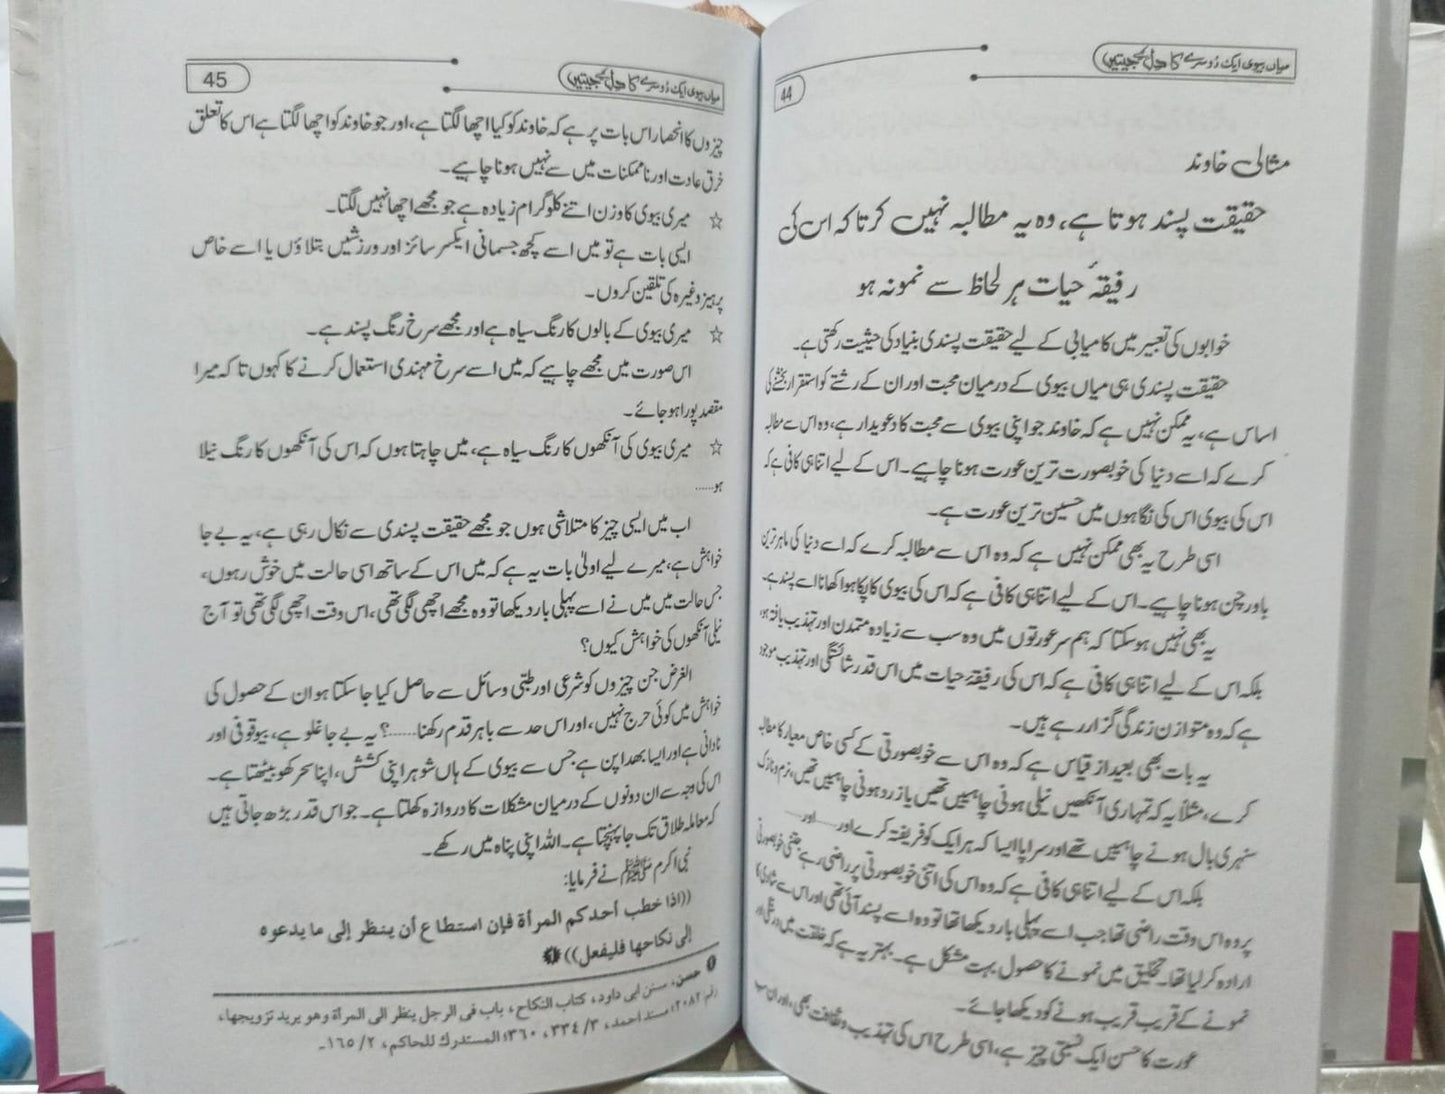 میاں بیوی ایک دوسرے کا دل کیسے جیتیں
44
مثالی خاوند
حقیقت پسند ہوتا ہے، وہ یہ مطالبہ نہیں کرتا کہ اس کی
رفیقۂ حیات ہر لحاظ سے نمونہ ہو
خوابوں کی تعبیر میں کامیابی کے لیے حقیقت پسندی بنیاد کی حیثیت رکھتی ہے۔
حقیقت پسندی ہی میاں بیوی کے درمیان محبت اور ان کے رشتے کو استقرار بخشنے کی
اساس ہے، یہ ممکن نہیں ہے کہ خاوند جو اپنی بیوی سے محبت کا دعویدار ہے، وہ اس سے مطالبہ
کرے کہ اسے دنیا کی خوبصورت ترین عورت ہونا چاہیے۔ اس کے لیے اتنا ہی کافی ہے کہ
اس کی بیوی اس کی نگاہوں میں حسین ترین عورت ہے۔
اسی طرح یہ بھی ممکن نہیں ہے کہ وہ اس سے مطالبہ کرے کہ اسے دنیا کی ماہر ترین
باورچن ہونا چاہیے۔ اس کے لیے اتنا ہی کافی ہے کہ اس کی بیوی کا پکا ہوا کھانا اسے پسند ہے۔
یہ بھی نہیں ہو سکتا کہ ہم سر عورتوں میں وہ سب سے زیادہ متمدن اور تہذیب یافتہ ہو،
بلکہ اس کے لیے اتنا ہی کافی ہے کہ اس کی رفیقۂ حیات میں اس قدر شائستگی اور تہذیب موجود
ہے کہ وہ متوازن زندگی گزار رہے ہیں۔
یہ بات بھی بعید از قیاس ہے کہ وہ اس سے خوبصورتی کے کسی خاص معیار کا مطالبہ
کرے، مثلاً یہ کہ تمہاری آنکھیں نیلی ہونی چاہییں تھیں یا زرد ہونی چاہییں تھیں، نرم و نازک
سنہری بال ہونے چاہییں تھے اور سراپا ایسا کہ ہر ایک کو فریفتہ کرے اور......اور......
بلکہ اس کے لیے اتنا ہی کافی ہے کہ وہ اس کی اتنی خوبصورتی پر راضی رہے جتنی خوبصورتی
پر وہ اس وقت راضی تھا جب اسے پہلی بار دیکھا تھا تو وہ اسے پسند آئی تھی اور اس سے شادی کا
ارادہ کر لیا تھا۔ تخلیق میں نمونے کا حصول بہت مشکل ہے۔ بہتر یہ ہے کہ خلقت میں درستگی اور
نمونے کے قریب قریب ہونے کو دیکھا جائے۔
عورت کا حسن ایک نسبتی چیز ہے، اسی طرح اس کی تہذیب و ثقافت بھی، اور ان سب
میاں بیوی ایک دوسرے کا دل کیسے جیتیں
45
چیزوں کا انحصار اس بات پر ہے کہ خاوند کو کیا اچھا لگتا ہے، اور جو خاوند کو اچھا لگتا ہے اس کا تعلق
خرق عادت اور ناممکنات میں سے نہیں ہونا چاہیے۔
☆ میری بیوی کا وزن اتنے کلو گرام زیادہ ہے جو مجھے اچھا نہیں لگتا۔
ایسی بات ہے تو میں اسے کچھ جسمانی ایکسرسائز اور ورزشیں بتلاؤں یا اسے خاص
پرہیز وغیرہ کی تلقین کروں۔
☆ میری بیوی کے بالوں کا رنگ سیاہ ہے اور مجھے سرخ رنگ پسند ہے۔
اس صورت میں مجھے چاہیے کہ میں اسے سرخ مہندی استعمال کرنے کا کہوں تا کہ میرا
مقصد پورا ہو جائے۔
☆ میری بیوی کی آنکھوں کا رنگ سیاہ ہے، میں چاہتا ہوں کہ اس کی آنکھوں کا رنگ نیلا
ہو......
اب میں ایسی چیز کا متلاشی ہوں جو مجھے حقیقت پسندی سے نکال رہی ہے، یہ بے جا
خواہش ہے، میرے لیے اولیٰ بات یہ ہے کہ میں اس کے ساتھ اسی حالت میں خوش رہوں،
جس حالت میں میں نے اسے پہلی بار دیکھا تو وہ مجھے اچھی لگی تھی، اس وقت اچھی لگی تھی تو آج
نیلی آنکھوں کی خواہش کیوں؟
الغرض جن چیزوں کو شرعی اور طبّی وسائل سے حاصل کیا جا سکتا ہو ان کے حصول کی
خواہش میں کوئی حرج نہیں، اور اس حد سے باہر قدم رکھنا......؟ یہ بے جا غلو ہے، بیوقوفی اور
نادانی ہے اور ایسا بھدا پن ہے جس سے بیوی کے ہاں شوہر اپنی کشش، اپنا سحر کھو بیٹھتا ہے۔
اس کی وجہ سے ان دونوں کے درمیان مشکلات کا دروازہ کھلتا ہے۔ جو اس قدر بڑھ جاتی ہیں
کہ معاملہ طلاق تک جا پہنچتا ہے۔ اللہ اپنی پناہ میں رکھے۔
نبی اکرم ﷺ نے فرمایا:
((اذا خطب أحدكم المرأة فإن استطاع أن ينظر إلى ما يدعوه
إلى نكاحها فليفعل)) ❶
❶ حسن، سنن ابی داود، کتاب النکاح، باب فی الرجل ینظر الی المرأة وهو يريد تزويجها،
رقم: ٢٠٨٢، مسند احمد، ٣/ ٣٣٤، ٣٦٠، المستدرك للحاكم، ٢/ ١٦٥۔